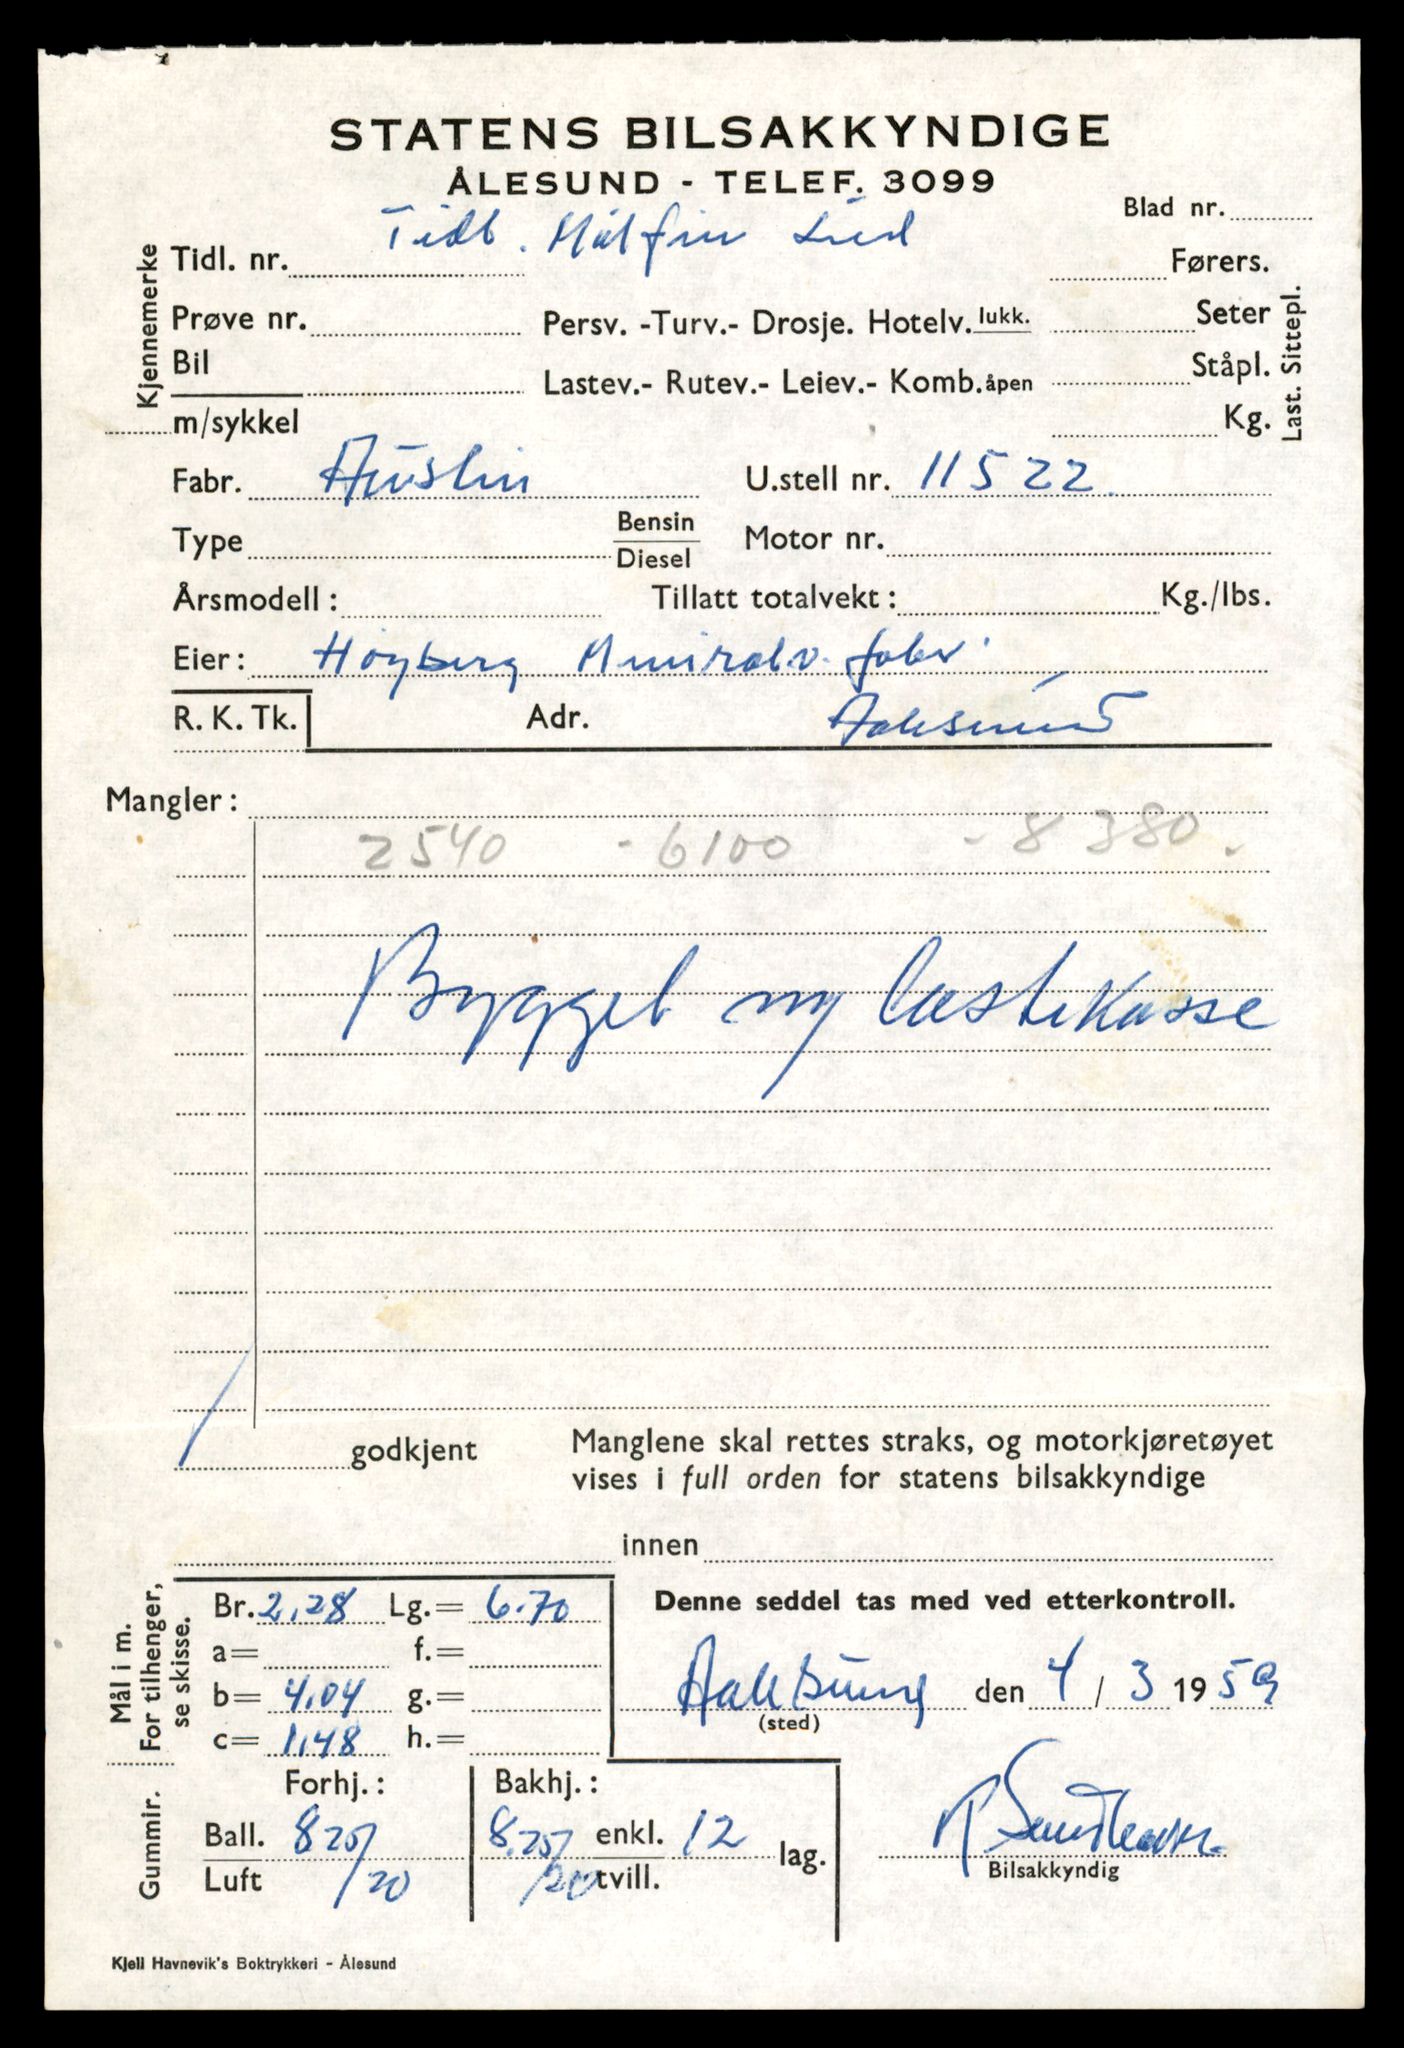 STATENS BILSAKKYNDIGE
ÅLESUND - TELEF. 3099
Blad nr.
Tidl.
Kjennemerke
Tidl. nr.
Førers.
Prøve nr.
Persv. -Turv.- Drosje. Hotelv. lukk.
Seter
Bil
Lastev.- Rutev.- Leiev.- Komb. åpen
Ståpl.
Last. Sittepl.
m/sykkel
Kg.
Fabr. Austin U.stell nr. 11522
Type Bensin
Diesel
Motor nr.
Årsmodell: Tillatt totalvekt: Kg./lbs.
Eier: Høyberg Mineralv. fabr.
R. K. Tk. Adr. Aalesund
Mangler:
2540 - 6100 - 8380.
Bygget ny lastekasse
godkjent Manglene skal rettes straks, og motorkjøretøyet
vises i full orden for statens bilsakkyndige
innen
Mål i m.
For tilhenger,
se skisse.
Br. 2,28 Lg.= 6.70
a= f.=
b= 4.04 g.=
c= 1,48 h.=
Denne seddel tas med ved etterkontroll.
Aalesund den 4/3 1959
(sted)
Gummir.
Forhj.: Bakhj.:
Ball. 825/20 8.25/20 enkl. 12 lag.
Luft tvill.
Bilsakkyndig
Kjell Havnevik's Boktrykkeri - Ålesund